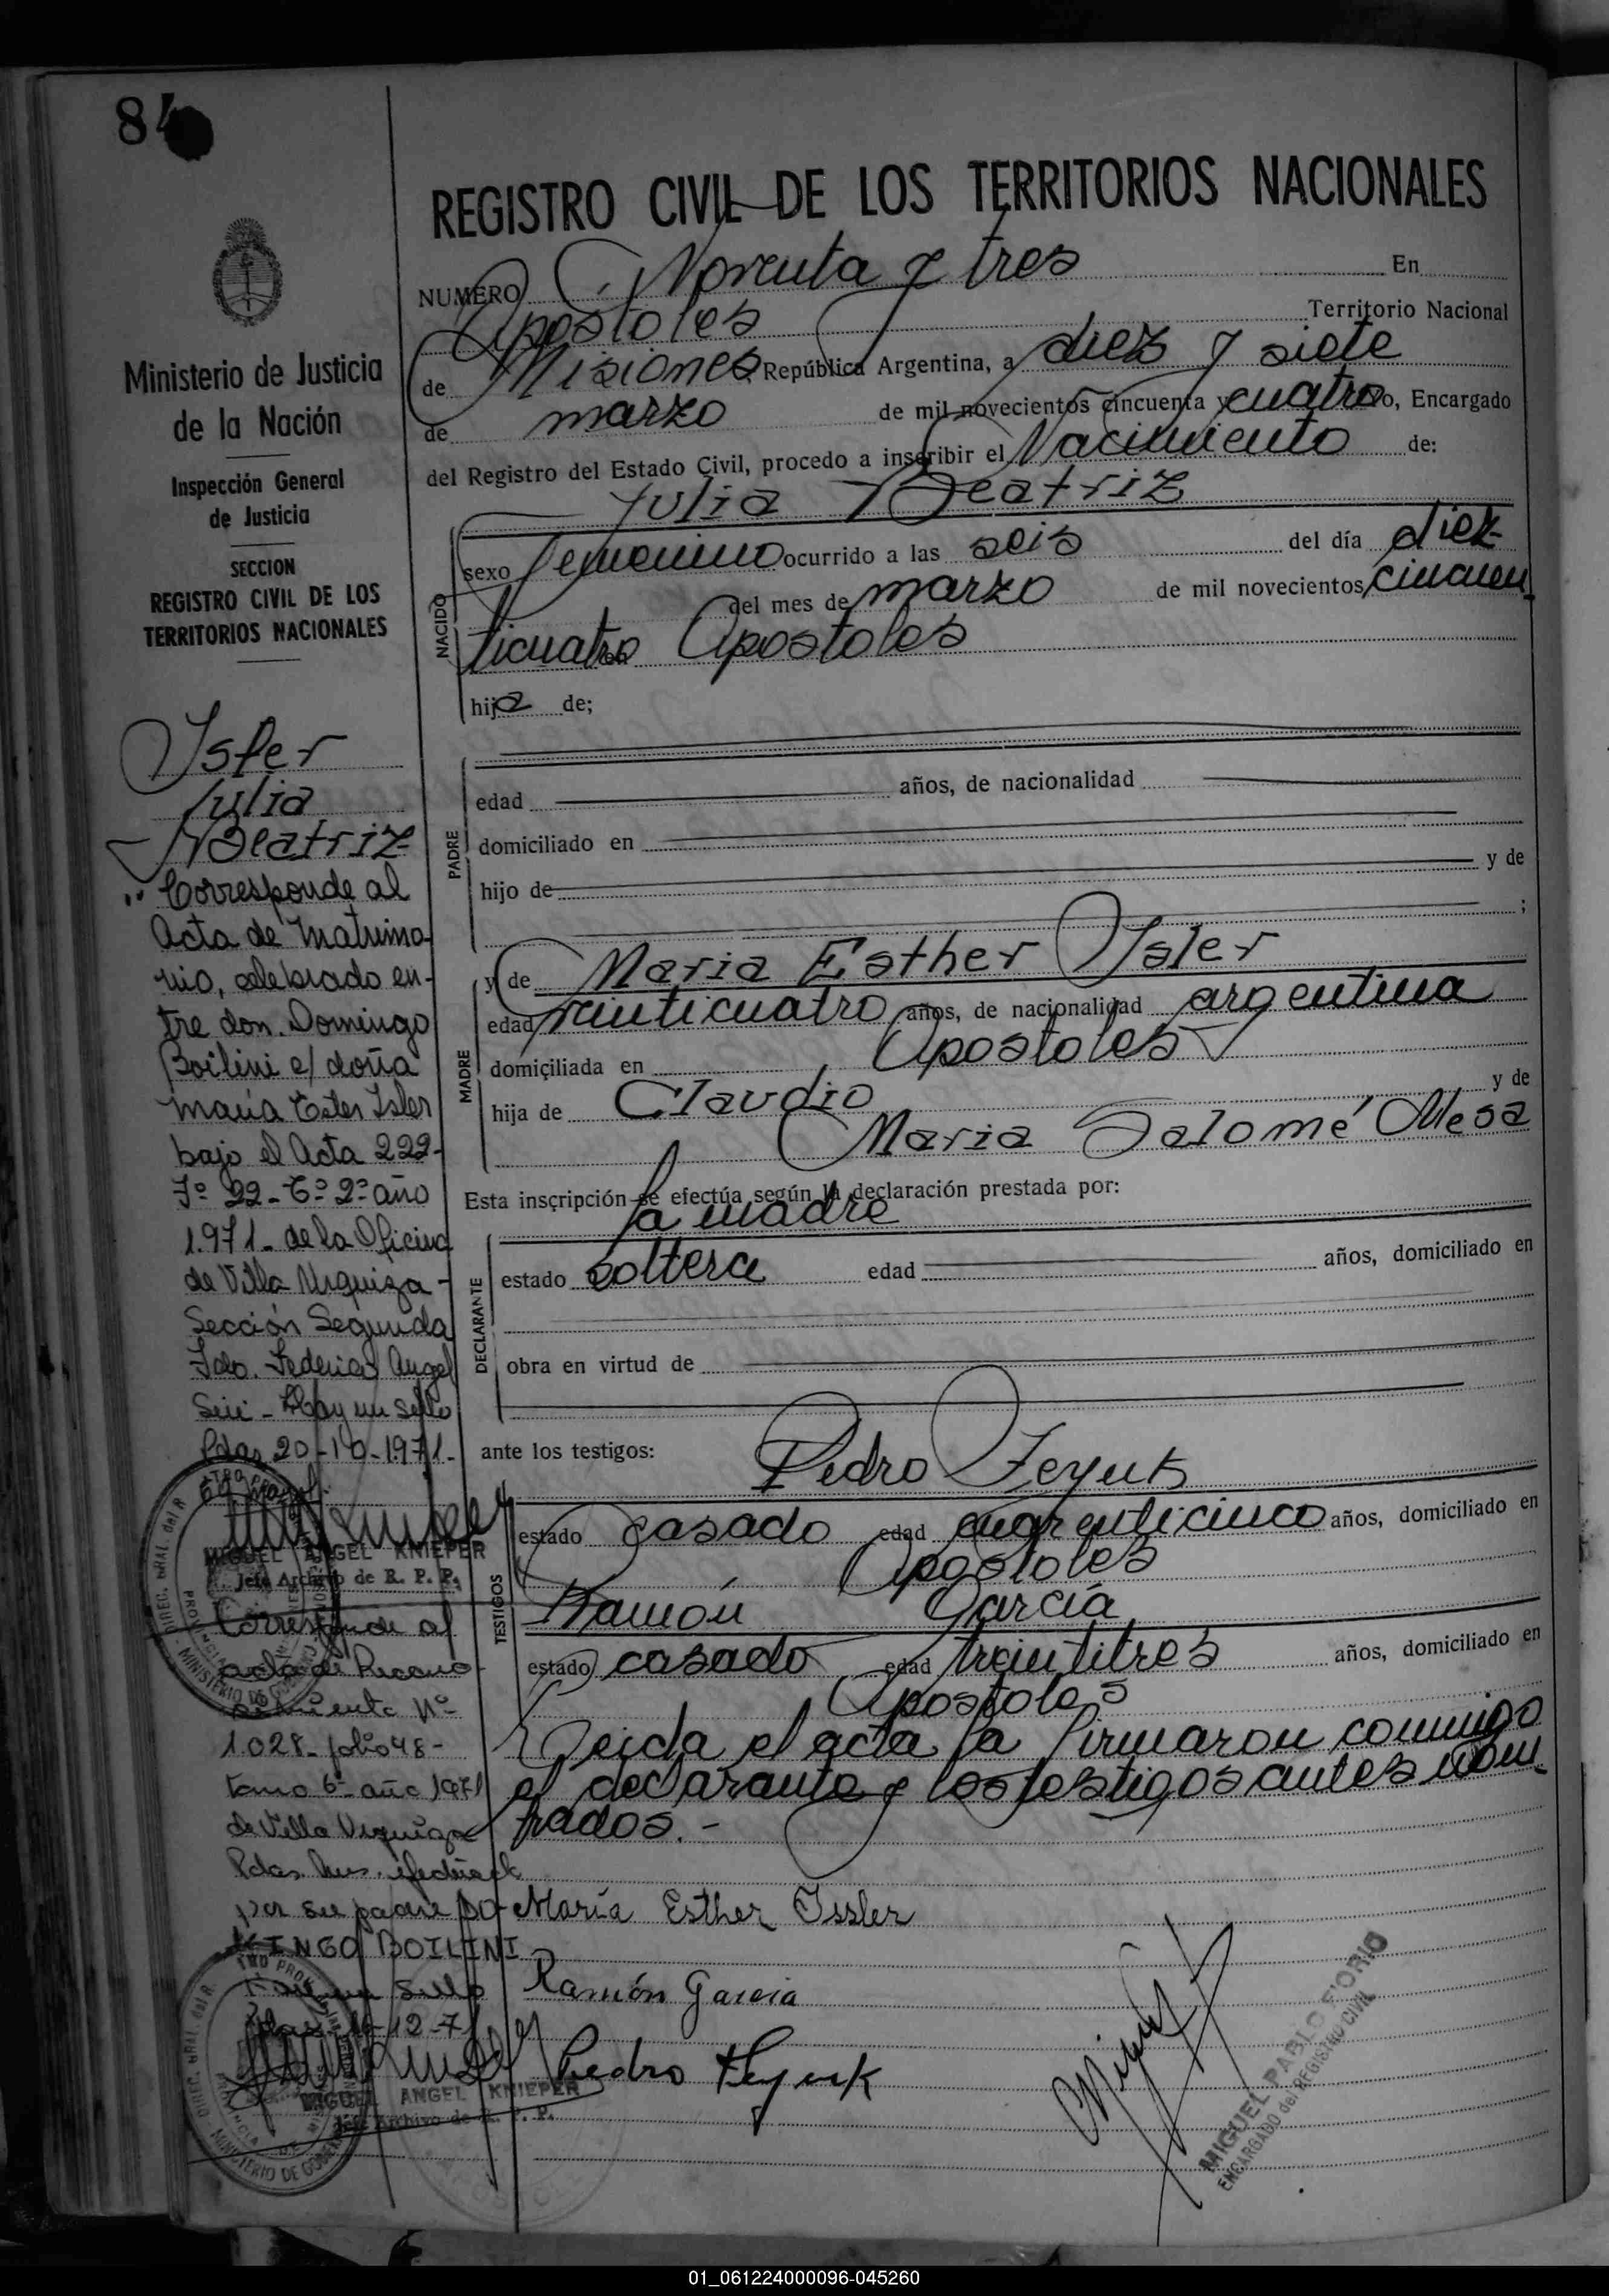 84
REGISTRO CIVIL DE LOS TERRITORIOS NACIONALES
NUMERO Noventa y tres En
Apostoles Territorio Nacional
de Misiones República Argentina, a diez y siete
de marzo de mil novecientos cincuenta y cuatro yo, Encargado
del Registro del Estado Civil, procedo a inscribir el Nacimiento de:
Julia Beatriz
NACIDO
sexo femenino ocurrido a las seis del día diez
del mes de marzo de mil novecientos cincuen
ticuatro en Apostoles
hija de;
PADRE
edad años, de nacionalidad
domiciliado en
hijo de y de
;
MADRE
y de Maria Esther Isler
edad veinticuatro años, de nacionalidad argentina
domiciliada en Apostoles
hija de Claudio y de
Maria Salomé Mesa
Esta inscripción se efectúa según la declaración prestada por:
la madre
DECLARANTE
estado soltera edad años, domiciliado en
obra en virtud de
ante los testigos:
Pedro
TESTIGOS
estado casado edad cuarenticinco años, domiciliado en
Apostoles
Ramón García
estado casado edad treintitres años, domiciliado en
Apostoles
Leida el acta la firmaron conmigo
el declarante y los testigos antes nom
brados.-
María Esther Issler
Ramón Garcia
Pedro
MIGUEL PABLO FIORIO
ENCARGADO del REGISTRO CIVIL
Ministerio de Justicia
de la Nación
Inspección General
de Justicia
SECCION
REGISTRO CIVIL DE LOS
TERRITORIOS NACIONALES
Isler
Julia
Beatriz
Corresponde al
Acta de Matrimo-
nio, celebrado en-
tre don. Domingo
Boilini c/ doña
maria Ester Isler
bajo el Acta 222-
Fº 22-Tº 2º año
1.971- de la Oficina
de Villa Urquiza-
Sección Segunda
Fdo. Federico Angel
- Hay un sello
Pdas 20-10-1971-
MIGUEL ANGEL KNIEPER
Jefe Archivo de R. P. P.
Corresponde al
acta de Recono-
cimiento Nº
1.028- folio 48-
tomo 6º año 1971
de Villa Urquiza
Pdas Mnes.
por su padre DO-
MINGO BOILINI
sello
12-7
MIGUEL ANGEL KNIEPER
Jefe Archivo de R. P. P.
01_061224000096-045260